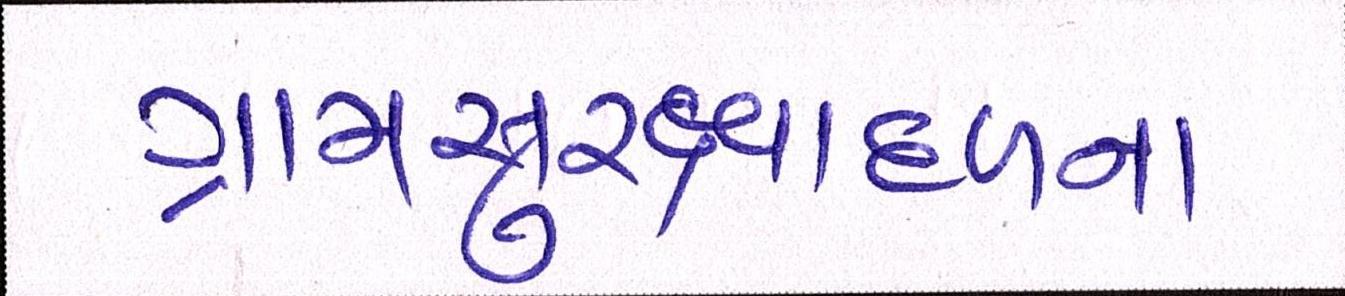 ગ્રામસુરક્ષાદળના